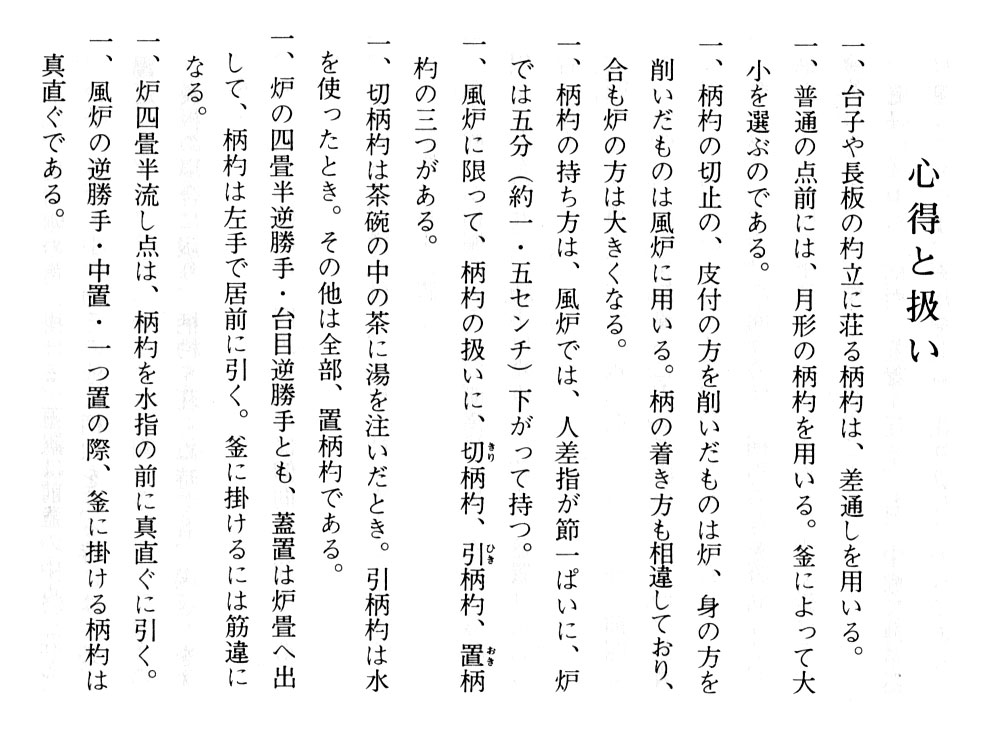 心得と扱い
一、台子や長板の杓立に荘る柄杓は、差通しを用いる。
一、普通の点前には、月形の柄杓を用いる。釜によって大
小を選ぶのである。
一、柄杓の切止の、皮付の方を削いだものは炉、身の方を
削いだものは風炉に用いる。柄の着き方も相違しており、
合も炉の方は大きくなる。
一、柄杓の持ち方は、風炉では、人差指が節一ぱいに、炉
では五分（約一・五センチ）下がって持つ。
一、風炉に限って、柄杓の扱いに、切柄杓、引柄杓、置柄
杓の三つがある。
一、切柄杓は茶碗の中の茶に湯を注いだとき。引柄杓は水
を使ったとき。その他は全部、置柄杓である。
一、炉の四畳半逆勝手・台目逆勝手とも、蓋置は炉畳へ出
して、柄杓は左手で居前に引く。釜に掛けるには筋違に
なる。
一、炉四畳半流し点は、柄杓を水指の前に真直ぐに引く。
一、風炉の逆勝手・中置・一つ置の際、釜に掛ける柄杓は
真直ぐである。